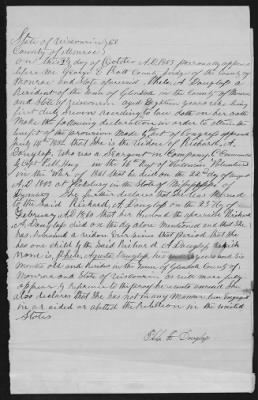 State of Wisconsin } ss
County of Monroe }
On this 3d day of October A.D. 1863 personally appeared
before me George E Pratt County Judge of the County of
Monroe and State aforesaid, Phebe A. Dunlap a
resident of the Town of Glendale in the County of Monroe
and State of Wisconsin aged Eighteen years who being
first duly Sworn according to law doth on her oath
Make the following declaration in order to obtain the
benefit of the provision Made by Act of Congress approved
July 14th 1862 that She is the widow of Richard A.
Dunlap who was a Sergeant in Company Commanded
by Capt in the Regt of Wisconsin Volunteers
in the War of 1861 that he died on the 22d day of
A.D. 1863 at Vicksburg in the State of Mississippi
She further declares that She was Married
to the Said Richard A. Dunlap on the 25 day of
February A.D. 1860 that her husband the aforesaid Richard
A. Dunlap died on the day above Mentioned and that She
has remained a widow Ever since that period, that She
has one child by the said Richard A Dunlap which
name is, Dunlap, years and six
months old and resides in the Town of Glendale County of
Monroe and State of Wisconsin as will more fully
appear by reference to the proof hereunto annexed She
also declares that She has not in any Manner been Engaged
in or aided or abetted the Rebellion in the United
States
Phebe A. Dunlap